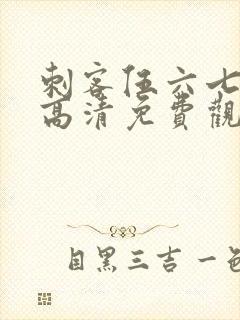 刺客伍六七
高清免費觀
目黑三吉一色